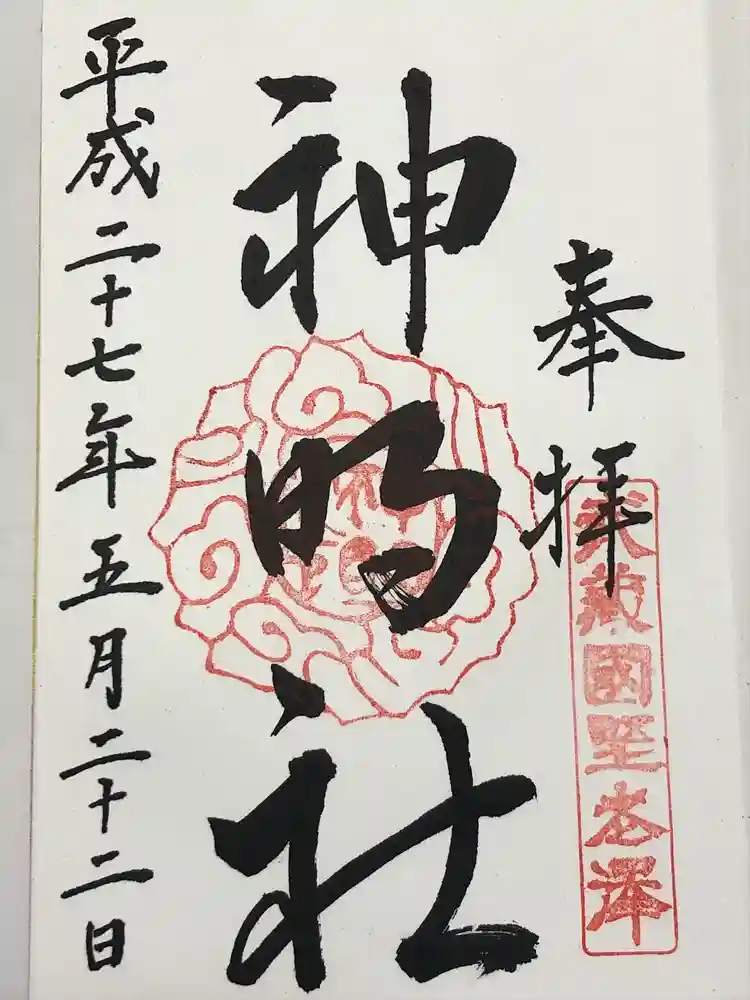 奉拝
武藏國埜老澤
神明社
平成二十七年五月二十二日